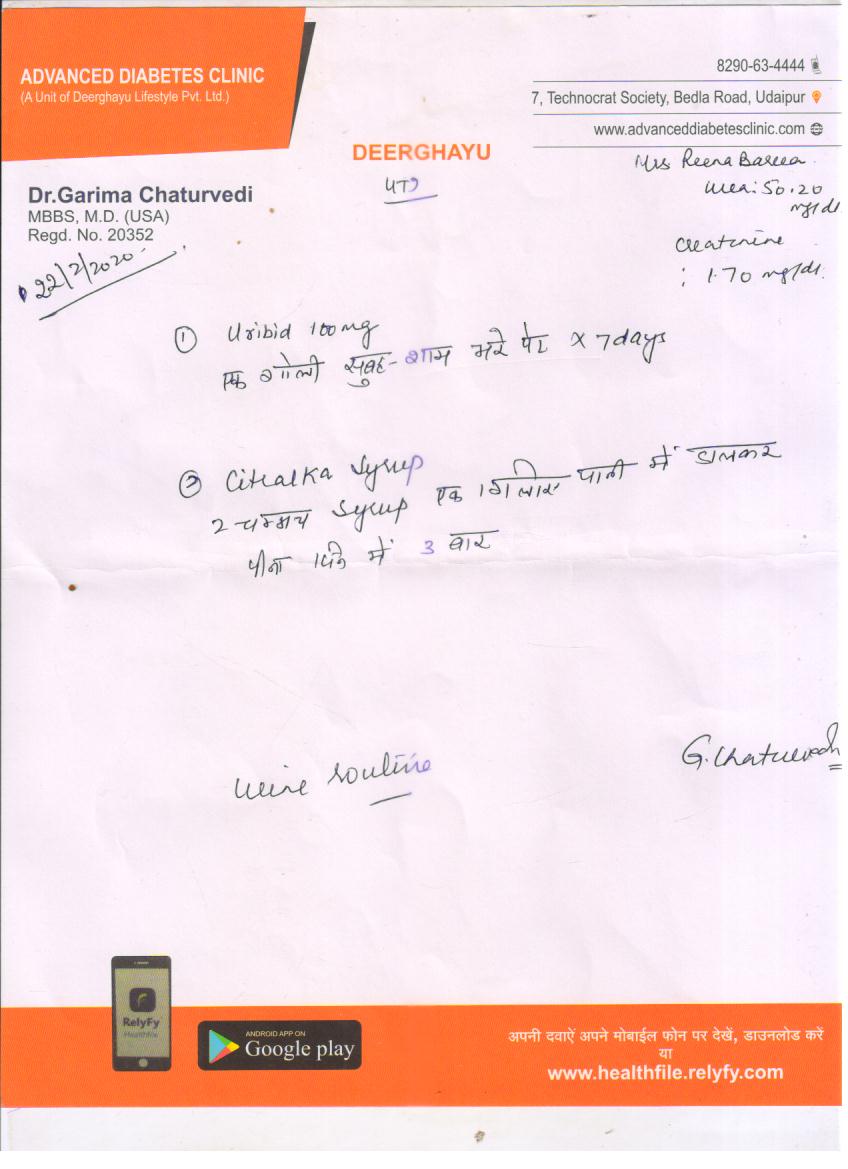 ADVANCED DIABETES CLINIC
(A Unit of Deerghayu Lifestyle Pvt. Ltd.)
8290-63-4444
7, Technocrat Society, Bedla Road, Udaipur
www.advanceddiabetesclinic.com
DEERGHAYU
UTI
Mrs Reena
Urea: 50.20
mg/dl
Creatinine
: 1.70 mg/dl.
Dr.Garima Chaturvedi
MBBS, M.D. (USA)
Regd. No. 20352
22/2/2020
① Uribid 100mg
एक गोली सुबह-शाम भरे पेट x 7days
② Citralka Syrup
2 चम्मच Syrup एक गिलास पानी में डालकर
पीना दिन में 3 बार
Urine routine
G.Chaturvedi
RelyFy
Healthfile
ANDROID APP ON
Google play
अपनी दवाऐं अपने मोबाईल फोन पर देखें, डाउनलोड करें
या
www.healthfile.relyfy.com